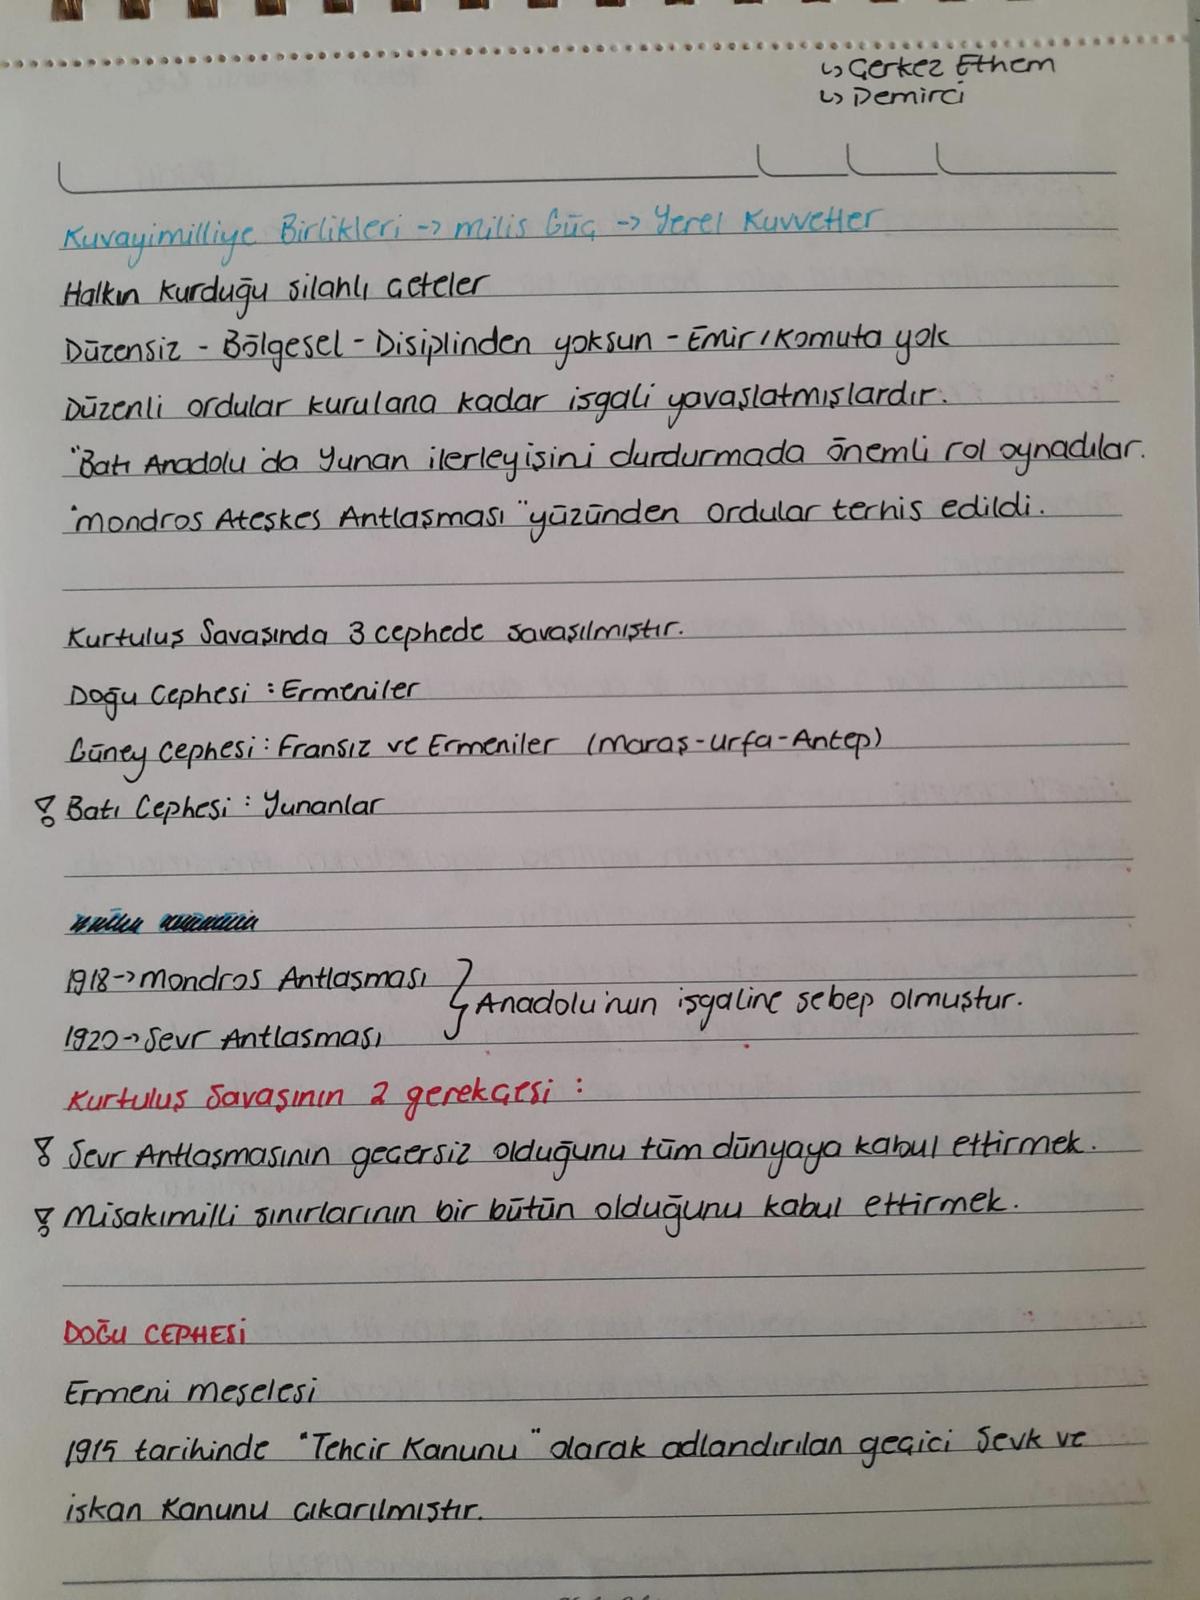 ↳ Çerkez Ethem
↳ Demirci
Kuvayimilliye Birlikleri -> Milis Güç -> Yerel Kuvvetler
Halkın kurduğu silahlı çeteler
Düzensiz - Bölgesel - Disiplinden yoksun - Emir / Komuta yok
Düzenli ordular kurulana kadar işgali yavaşlatmışlardır.
"Batı Anadolu'da Yunan ilerleyişini durdurmada önemli rol oynadılar.
"Mondros Ateşkes Antlaşması" yüzünden ordular terhis edildi.
Kurtuluş Savaşında 3 cephede savaşılmıştır.
Doğu Cephesi : Ermeniler
Güney Cephesi : Fransız ve Ermeniler (Maraş-Urfa-Antep)
! Batı Cephesi : Yunanlar
1918 -> Mondros Antlaşması
1920 -> Sevr Antlaşması } Anadolu'nun işgaline sebep olmuştur.
Kurtuluş Savaşının 2 gerekçesi :
! Sevr Antlaşmasının geçersiz olduğunu tüm dünyaya kabul ettirmek.
! Misakımilli sınırlarının bir bütün olduğunu kabul ettirmek.
DOĞU CEPHESİ
Ermeni meselesi
1915 tarihinde "Tehcir Kanunu" olarak adlandırılan geçici Sevk ve
iskan Kanunu çıkarılmıştır.